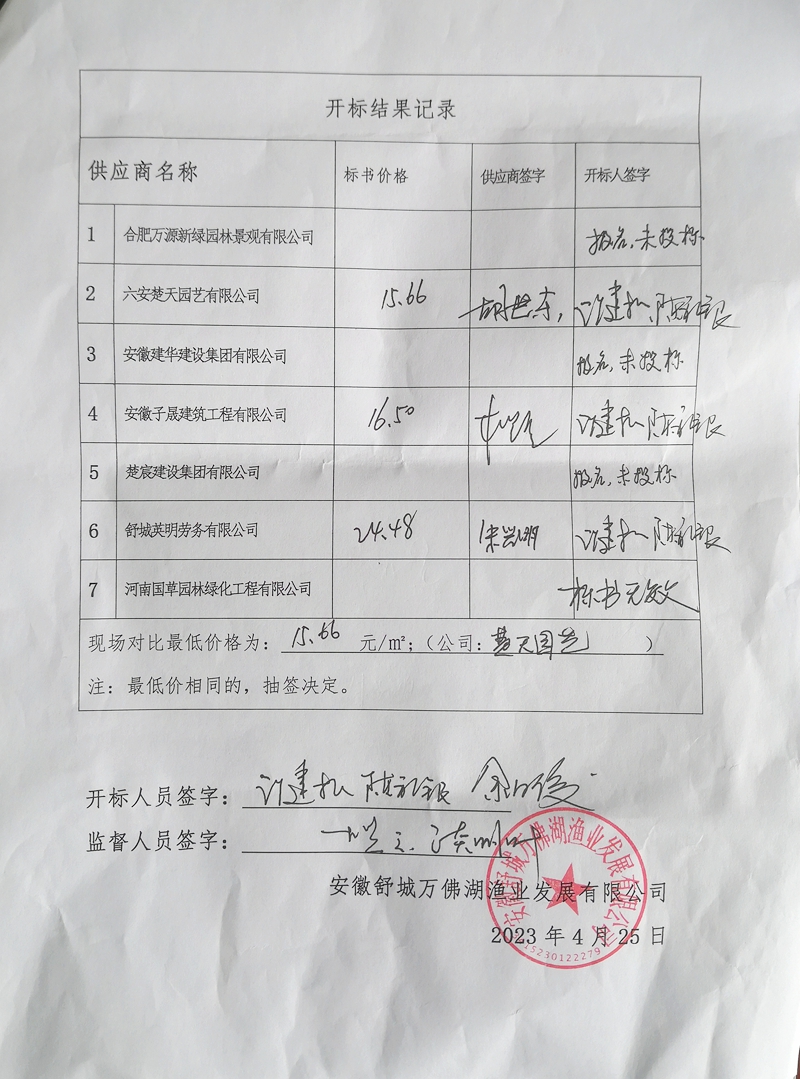 开标结果记录
供应商名称 标书价格 供应商签字 开标人签字
1 合肥万源新绿园林景观有限公司 报名,未投标
2 六安楚天园艺有限公司 15.66
3 安徽建华建设集团有限公司 报名,未投标
4 安徽子晟建筑工程有限公司 16.50
5 楚宸建设集团有限公司 报名,未投标
6 舒城英明劳务有限公司 24.48
7 河南国草园林绿化工程有限公司 标书无效
现场对比最低价格为: 15.66 元/㎡;(公司:楚天园艺 )
注:最低价相同的,抽签决定。
开标人员签字:
监督人员签字:
安徽舒城万佛湖渔业发展有限公司
2023 年 4 月 25 日
安徽舒城万佛湖渔业发展有限公司